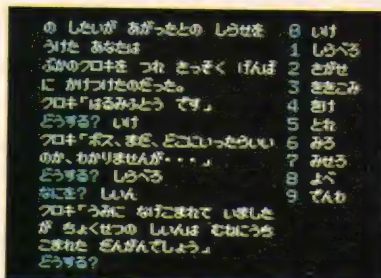 の したいが あがったとの しらせを
うけた あなたは
ぶかのクロキを つれ さっそく げんば
に かけつけたのだった。
クロキ「はるみふとう です」
どうする? いけ
クロキ「ボス、まだ、どこにいったらいい
のか、わかりませんが・・・」
どうする? しらべろ
なにを? しいん
クロキ「うみに なげこまれて いました
が ちょくせつの しいんは むねにうち
こまれた だんがんでしょう」
どうする?
0 いけ
1 しらべろ
2 さがせ
3 ききこみ
4 きけ
5 とれ
6 みろ
7 みせろ
8 よべ
9 でんわ